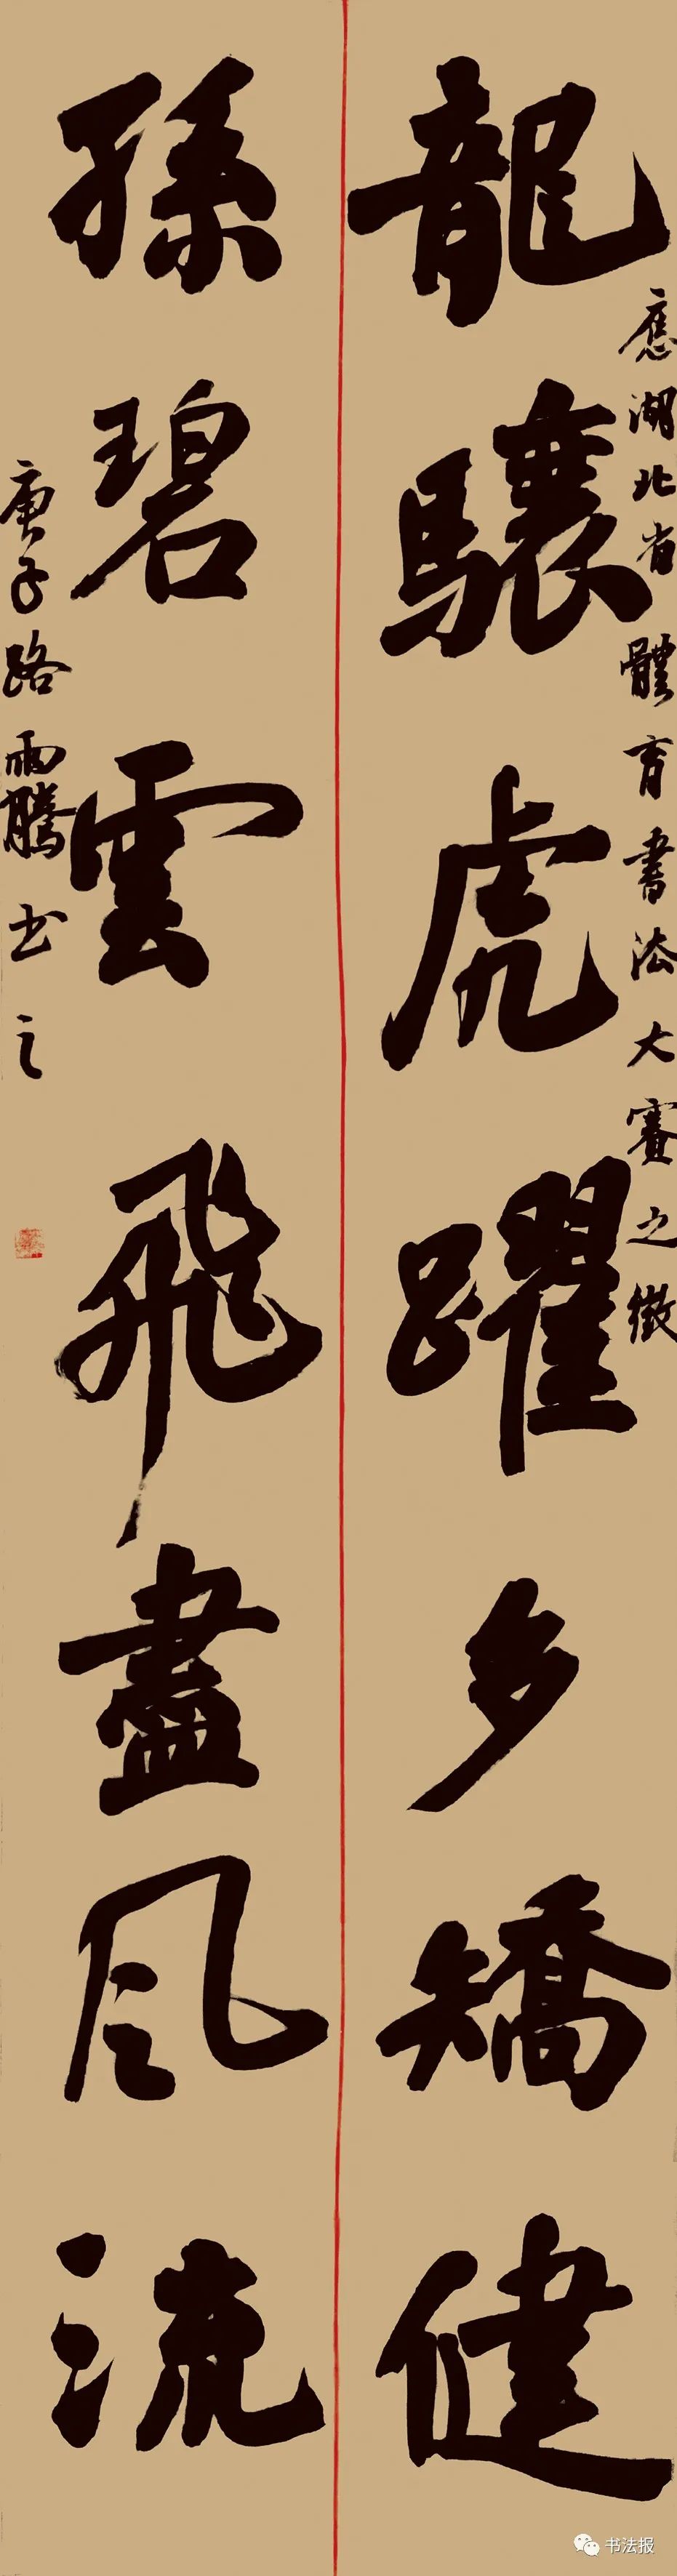 應湖北省體育書法大賽之徵
龍驤虎躍多矯健
孫碧雲飛盡風流
庚子路雨騰书之
书法报